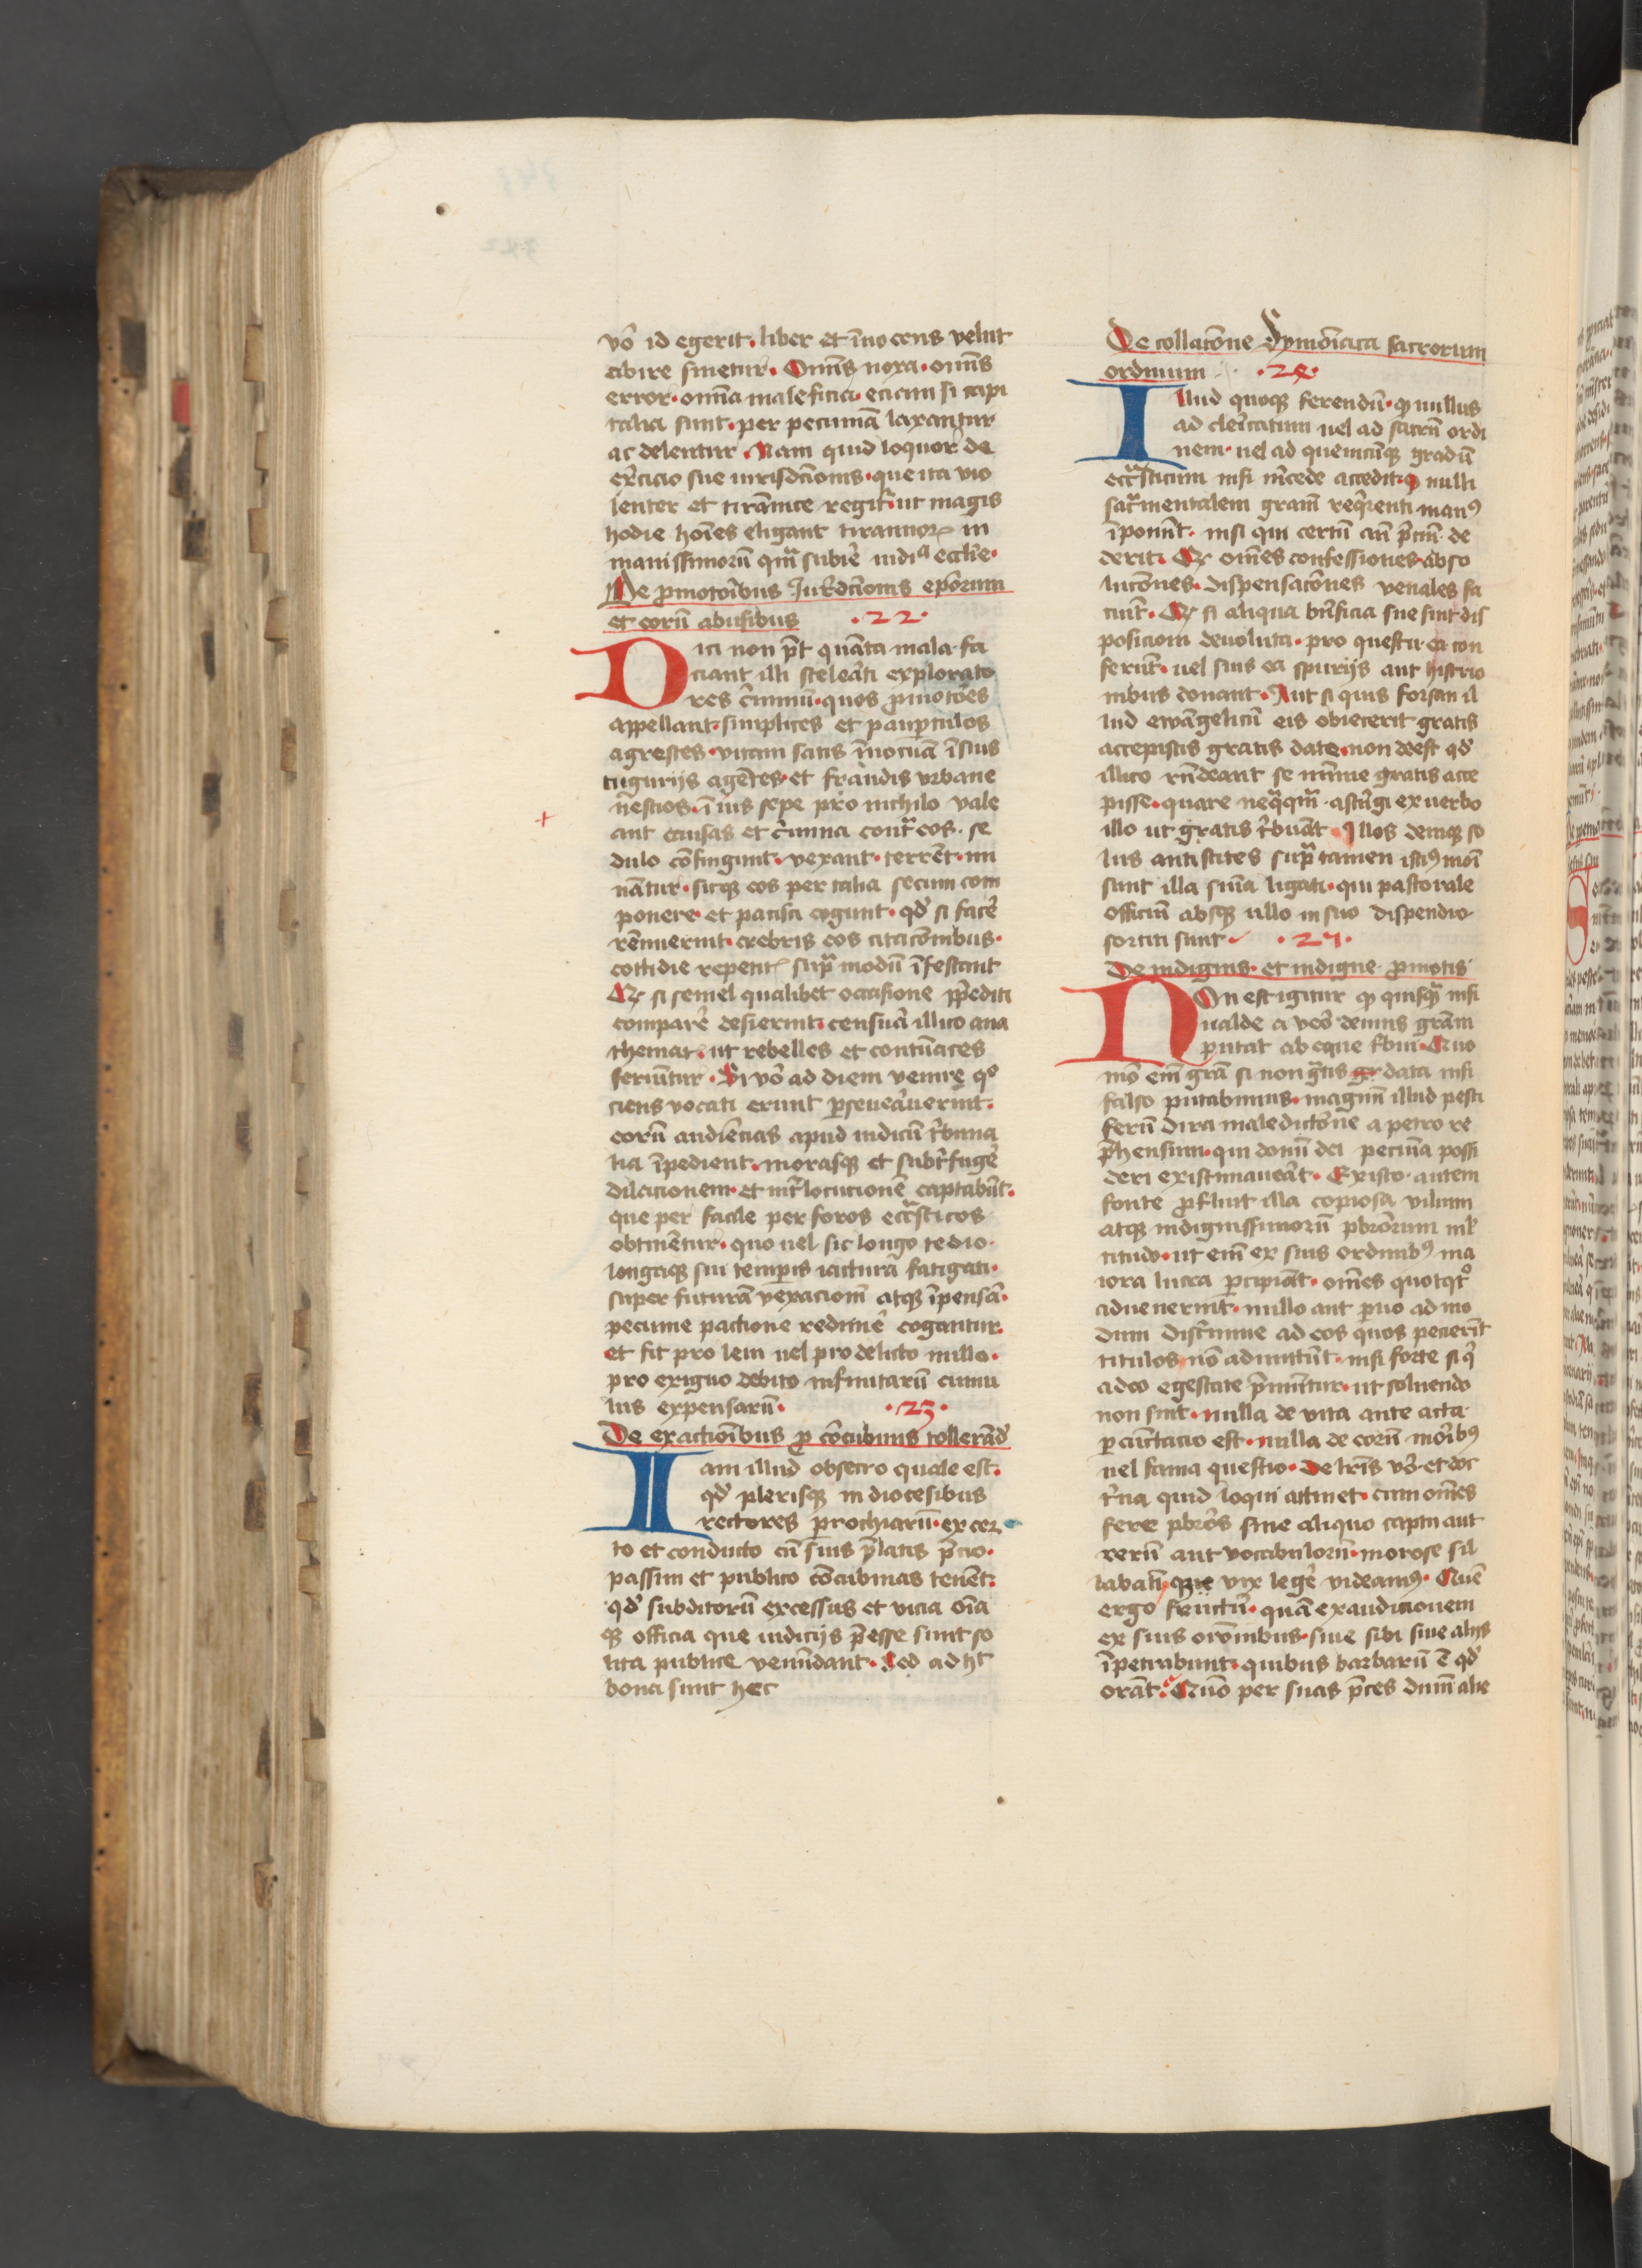 vō id egerit. liber et īnocens velut
abire sinetur. Omīs noxa. omīs
error. omīa maleficia. eciam si capi
talia sint. per pecuniā laxantur
ac delentur. Nam quid loquor de
exēcicio sue iurisdcīonis. que ita vio
lenter et tirānice regit᷑ ut magis
hodie hoīes eligant tirannoꝝ in
manissimorū qm̄ subire iudiᵃ ecclīe.
De pͦmotoībus Iurēdcīonis epōrum
et eorū abusibus .22.
Dici non pōt quāta mala fa
ciant illi sceleāti explorato
res cīminū. quos pͦmotōes
appellant. simplices et pauperculos
agrestes. vitam satis īnocuā ī suis
tugurijs agētes. et fraudis vrbane
nēscios. ī ius sepe pro nichilo vale
ant causas et cīmina contᷓ eos. se
dulo cōfingunt. vexant. terrēt. mi
nātur. sicqꝫ eos per talia secum com
ponere et pacisci cogunt. qd̄ si facē
rēnuerint. crebris eos citacōnibus.
cottidie repetit᷑ supᷓ modū īfestant
Et si semel qualibet occasione p̄pediti
comparē desierint. censuā illico ana
thematꝭ. ut rebelles et contūaces
feriūtur. Si vō ad diem venire qͦ
ciens vocati erunt perseueāuerint.
eorū audiēcias apud iudicū tībuna
lia īpedient. morasqꝫ et subtīfugē
dilacionem. et int̄locucionē captabūt.
que per facile per foros eccᷓsticos
obtinētur. quo uel sic longo tedio.
longaqꝫ sui temporis iactura fatigati.
super futurā vexacionē atqꝫ īpensā.
pecunie pactione redimē cogantur.
et fit pro leui uel pro delicto nullo.
pro exiguo debito infinitarū cumu
lus expensarū. .23.
De exactioībus pͦ cōcubinis tollerādꝭ
Iam illud obsecro quale est.
qd̄ plerisqꝫ in diocesibus
rectores parrochiarū. ex cer
to et conducto cū suis p̄latis p̄cio.
passim et publico cōcubinas tenēt.
qd̄ subditorū excessus et vicia oīa
qꝫ officia que iudicijs p̄esse sunt so
lita publice venūdant. Sed ad hͨ
bona sunt hec
De collacōne Symōiaca sacrorum
ordinum .24.
Illud quoqꝫ ferendū. qꝫ nullus
ad clericatum uel ad sacrū ordi
nem. uel ad quemcūqꝫ gradū
eccᷓsticum nisi mērcede accedit. qꝫ nulli
sacᷓmentalem gratiā reqͥrenti manꝰ
īponūt. nisi qui certū eis p̄ciū de
derit. Et omēs confessiones. abso
lucōnes. dispensacōnes venales fa
ciūt. Et si aliqua bn̄ficia sue sint dis
posicioni deuoluta. pro questu ea con
ferūt. uel suis ea spurijs aut histrio
nibus donant. Aut si quis forsan il
lud ewāgelicū eis obiecerit gratis
accepistis gratis date. non deest qd̄
illico rn̄deant se mīme gratis acce
pisse. quare neqᷓqm̄ astīgi ex verbo
illo ut gratis tībuāt. Illos deniqꝫ so
lus antistites supᷓ tamen istiꝰ modī
sunt illa sn̄ia ligati. qui pastorale
officiū absqꝫ ullo in suo dispendio
sortiti sunt .25.
De indignis et indigne pͦmotis
Non est igitur qꝫ quisqᷓ nisi
ualde a vōs deuius grām
putat ab eque tbui. Quo
mō em̄ grā si non gᷓtis gr data nisi
falso putabimus. magnū illud pesti
ferū dira maledictōne a petro re
p̄hensum. qui donū dei pecunia possi
deri existimaueāt. Ex isto autem
fonte pͦfluit illa copiosa vilium
atqꝫ indignissimorū pbrōrum ml̄
titudo. ut em̄ ex suis ordinibꝰ ma
iora lucra percipiāt. omēs quotqͦt
aduenerint. nullo aut paruo ad mo
dum discīmine ad eos quos pecierīt
titulos nō admittūt. nisi forte si qͥ
adeo egestate p̄mūtur. ut soluendo
non sint. nulla de vita ante acta
percūctacio est. nulla de eorū moribꝰ
uel fama questio. De lrīs vō et doc
tīna quid loqui attinet. cum omēs
fere pbrōs sine aliquo captu aut
rerū aut vocabulorū. morose sil
labatī qꝫe vix legē videamꝰ. Quē
ergo fructū. quā exaudicionem
ex suis orōnibus. siue sibi siue alijs
īpetrabunt. quibus barbarū ē qd̄
orāt. Quō per suas p̄ces diuinā alie